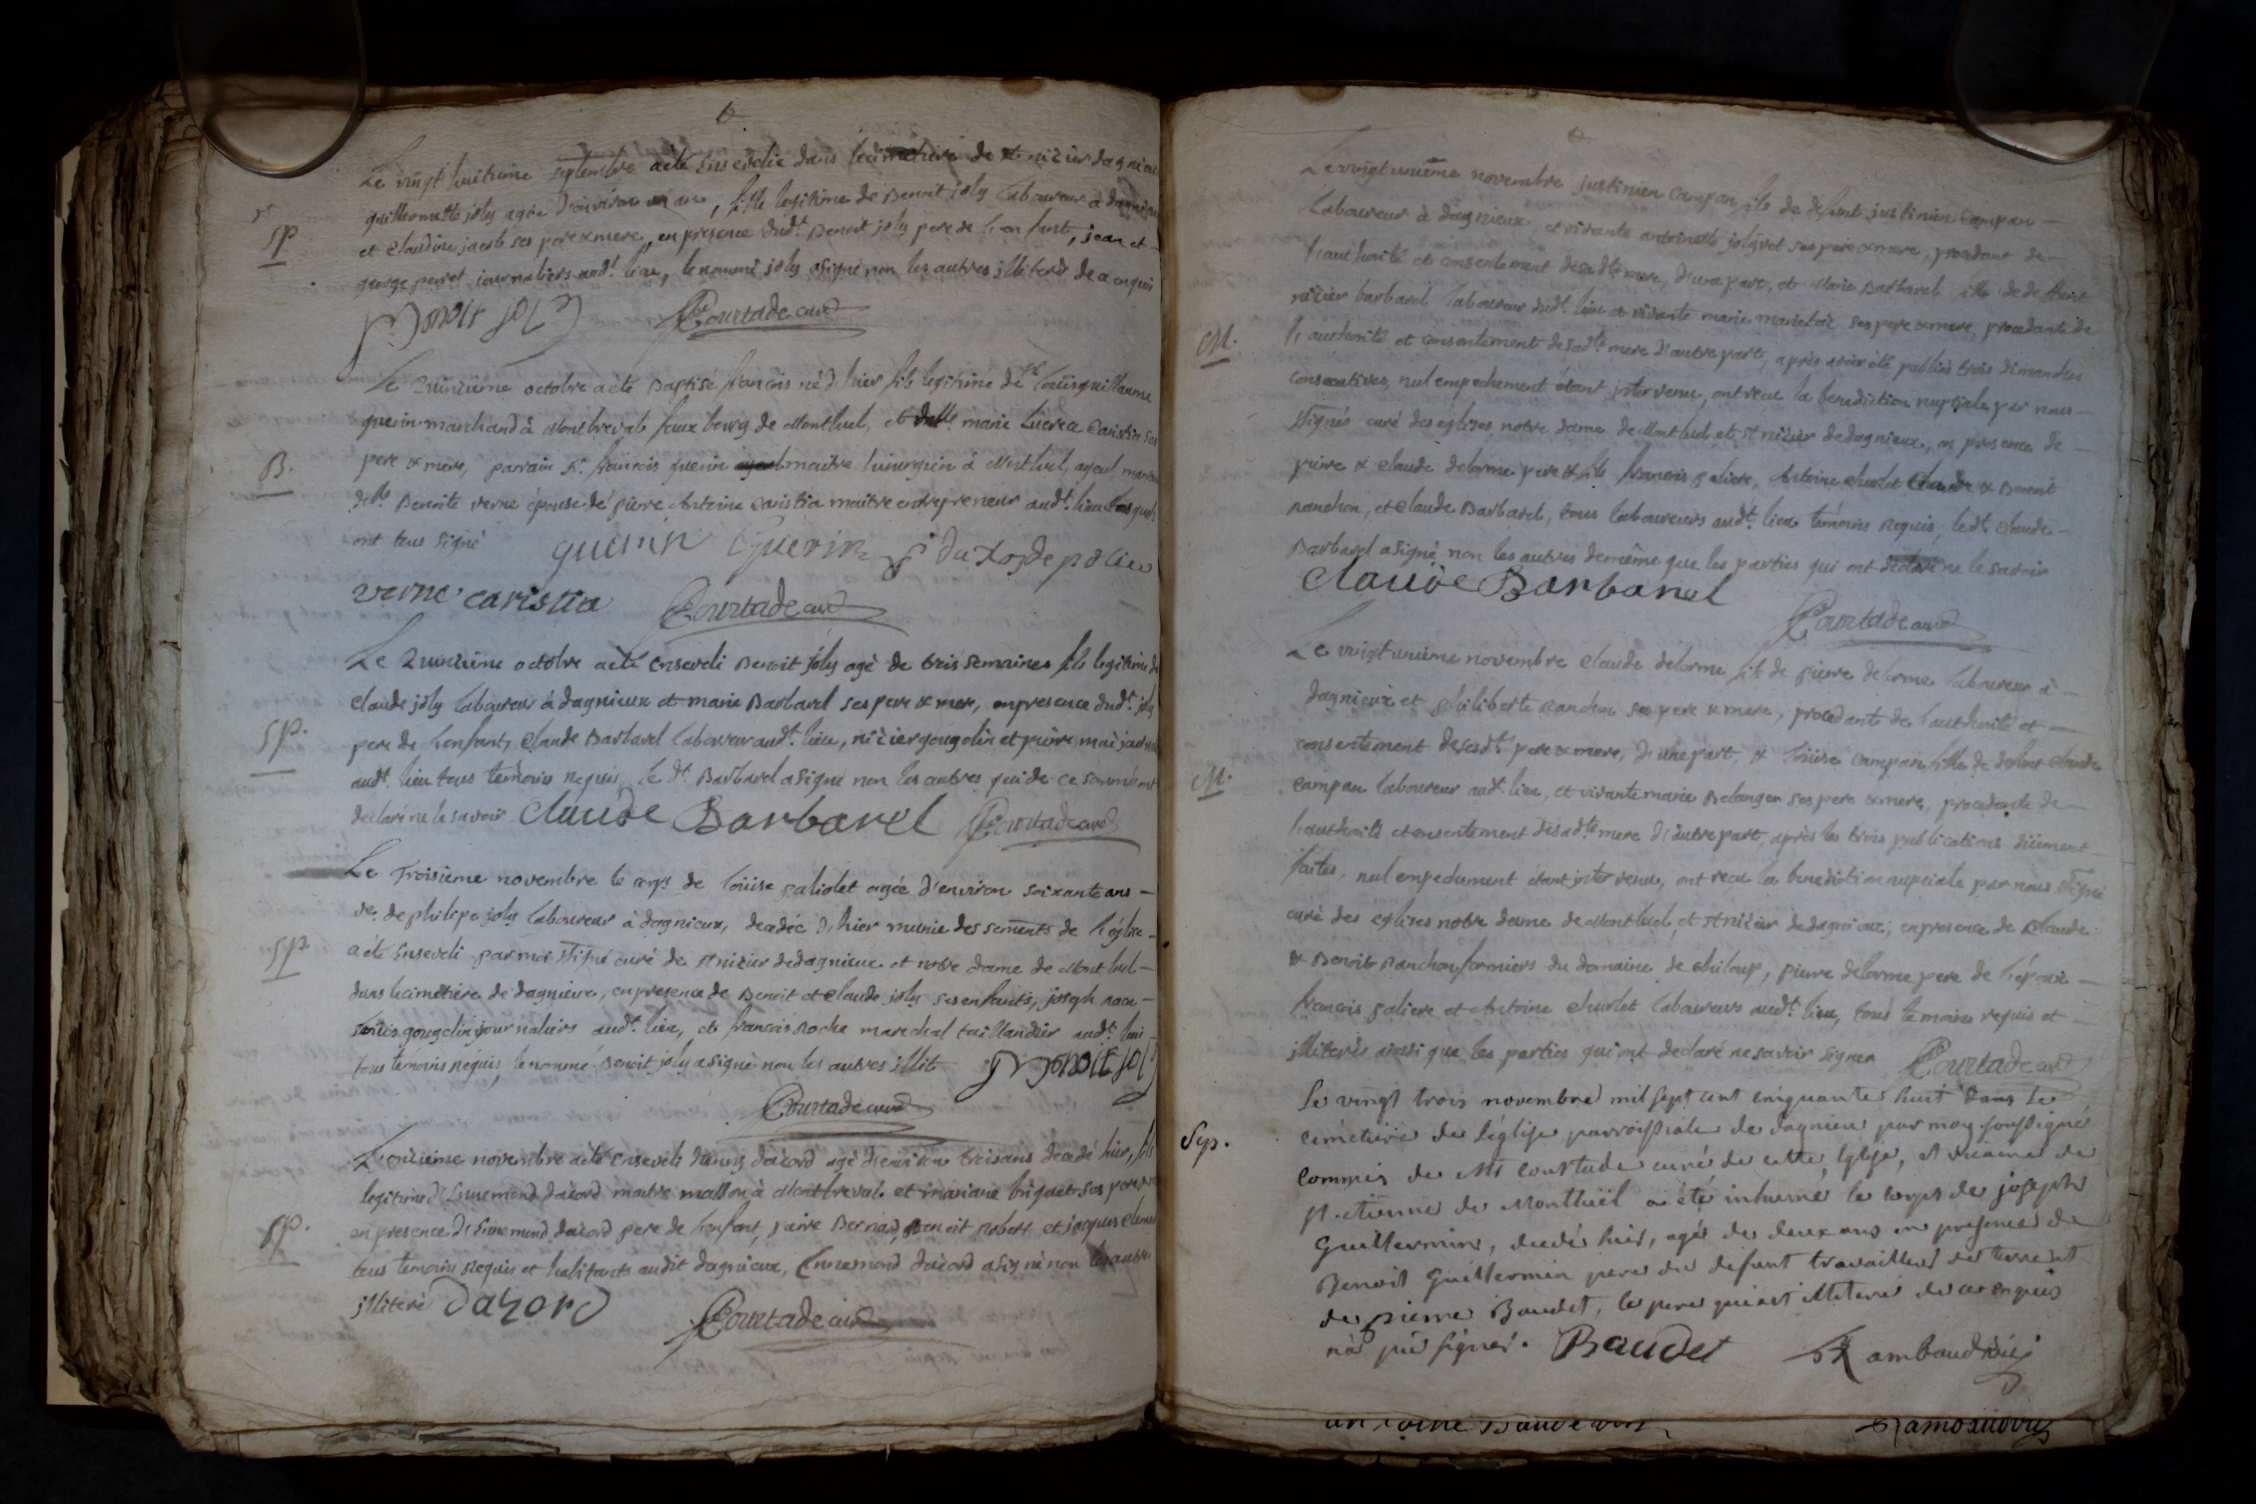 Le vingt huitieme septembre a été Ensevelie dans le cimetiere de st nizier dagnieux
guillermette joly agée d'environ un an, fille legitime de Benoit joly laboureur à dagnieux
et Claudine jacob ses pere & mere, en presence dudt. Benoit joly pere de l'enfant, jean et
george perret journaliers audt. lieu, le nommé joly a signé non les autres illiterés de ce enquis
Sp
Benoit joly Courtade curé
Le Quinzieme octobre a été Baptisé françois né d'hier fils legitime de sr. Loüis guillaume
guerin marchand à Montbreval faux bourg de Montluel, et delle. marie Lucrece Caristia ses
B.
pere & mere, parrain sr. françois guerin maitre chirurgien à Montluel, ayeul, marraine
delle Benoite verne épouse de pierre Antoine Caristia maitre entrepreneur audt. lieu lesquels
ont tous signé guerin Guerin
verne caristia Courtade curé
Le Quinzieme octobre a été Enseveli Benoit joly agé de trois semaines fils legitime de
Claude joly laboureur à dagnieux et marie Barbarel ses pere & mere, en presence dudt. joly
Sp.
pere de l'enfant, Claude Barbarel laboureur audt. lieu, nizier gougolin et
audt. lieu tous temoins requis, le dt. Barbarel a signé non les autres qui de ce sommé ont
declaré ne le savoir Claude Barbarel Courtade curé
Le Troisieme novembre le corps de Loüise galiolet agée d'environ soixante ans
ve. de philipe joly laboureur à dagnieux, decedée d'hier munie des sements de l'église
Sp
a été Enseveli par moi ssigné curé de st nizier de dagnieux et notre dame de Montluel
dans le cimetiere de dagnieux, en presence de Benoit et Claude joly ses enfants, joseph
gougolin journaliers audt. lieu, et françois Roche marechal taillandier audt. lieu
tous temoins requis, le nommé Benoit joly a signé non les autres illit. Benoit joly
Courtade curé
L'onzieme novembre a été Enseveli dacord agé d'environ trois ans decedé hier, fils
legitime d'Ennemond dacord maitre masson à Montbreval et mariane briquet ses pere
Sp.
en presence d'Ennemond dacord pere de l'enfant, pierre Bernard, Benoit Robert et jacques
tous temoins requis et habitants audit dagnieux, Ennemond dacord a signé non les autres
illiteré Dacord Courtade curé
Le vingt unieme novembre justinien Campan fils de defunt justinien Campan
laboureur à dagnieux et vivante antoinette jolivet ses pere & mere, procedant de
l'authorité et consentement de sadte mere, d'une part, et Marie Barbarel fille de defunt
nizier barbarel laboureur dudt. lieu et vivante marie ses pere & mere, procedante de
M.
l'authorité et consentement de sadte mere d'autre part, après avoir été publiés trois dimanches
consecutives, nul empechement étant intervenu, ont recu la benediction nuptiale par nous
ssigné curé des eglises notre dame de Montluel et st nizier de dagnieux, en presence de
pierre & Claude delorme pere & fils françois galiere, Antoine Churlet & Benoit
Ranchon, et Claude Barbarel, tous laboureurs audt. lieu temoins requis, le dt. Claude
Barbarel a signé non les autres de même que les parties qui ont declaré ne le savoir
Claude Barbarel
Courtade curé
Le vingt unieme novembre Claude delorme fils de pierre delorme laboureur à
dagnieux et philiberte Ranchon ses pere & mere, procedante de l'authorité et
consentement de sesdt. pere & mere, d'une part, & Loüise Campan fille de defunt Claude
M.
Campan laboureur audt. lieu, et vivante marie Belanger ses pere & mere, procedante de
l'authorité et consentement de sadte mere d'autre part, après les trois publications düement
faites, nul empechement étant intervenu, ont recu la benediction nupciale par nous ssigné
curé des eglises notre dame de Montluel, et st nizier de dagnieux; en presence de Claude
& Benoit Ranchon fermiers du domaine de chiloup, pierre delorme pere de l'époux
françois galiere et Antoine Churlet laboureurs audt. lieu, tous temoins requis et
illiterés ainsi que les parties qui ont declaré ne savoir signer Courtade curé
Le vingt trois novembre mil sept cent cinquante huit dans le
Sep.
cimetiere de l'église parroissiale de dagnieu par moy soussigné
commis de Mr Courtade curé de cette Eglise, et vicaire de
st. etienne de Montluël a été inhumé le corps de joseph
Guillermin, decedé hier, agé de deux ans en presence de
Benoit Guillermin pere du defunt travailleur de terre et
de pierre Baudet, le pere qui est illiteré de ce enquis
n'a pû signer. Baudet Rambaud vic
antoine Baudet Rambaud vic